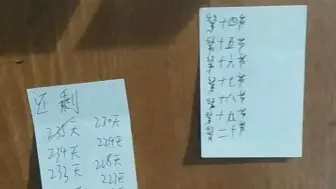 还剩
235天
234天
233天
230天
229天
228天
第十四节
第十五节
第十六节
第十七节
第十八节
第十九节
第二十节